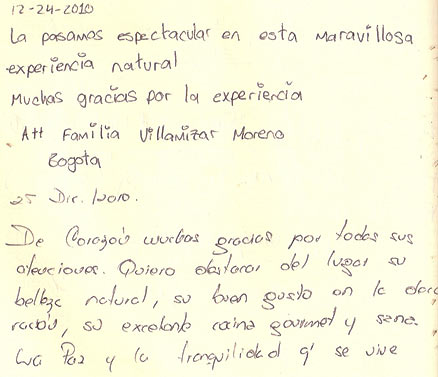 12-24-2010
La pasamos espectacular en esta maravillosa
experiencia natural
Muchas gracias por la experiencia
Att Familia Villamizar Moreno
Bogota
25 Dic. /2010.
De Corazón muchas gracias por todas sus
atenciones. Quiero destacar del lugar su
belleza natural, su buen gusto en la deco
ración, su excelente cocina gourmet y sana.
La Paz y la tranquilidad q' se vive